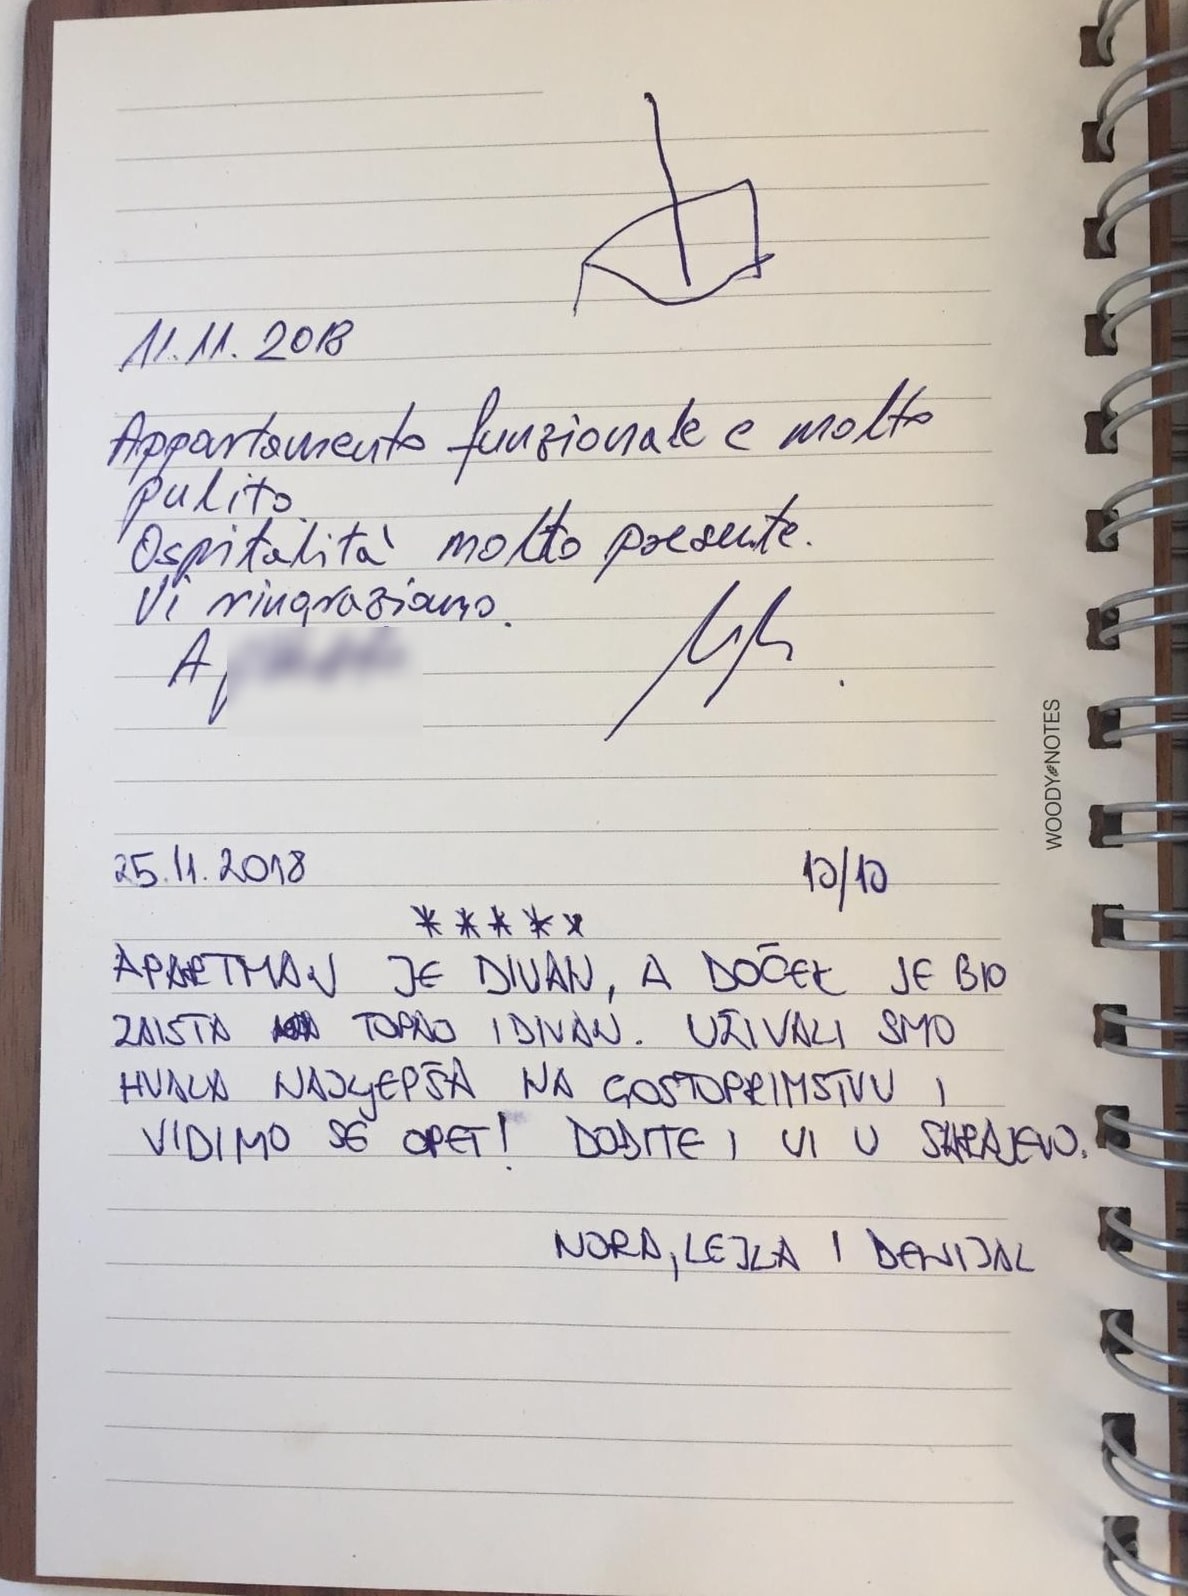 11.11.2018
Appartamento funzionale e molto
pulito.
Ospitalità molto presente.
Vi ringraziamo.
A
25.11.2018 10/10
*****
APARTMAN JE DIVAN, A DOČEK JE BIO
ZAISTA TOPAO I DIVAN. UŽIVALI SMO
HVALA NAJLJEPŠA NA GOSTOPRIMSTVU I
VIDIMO SE OPET! DOĐITE I VI U SARAJEVO.
NORA, LEJLA I DENIJAL
WOODY NOTES